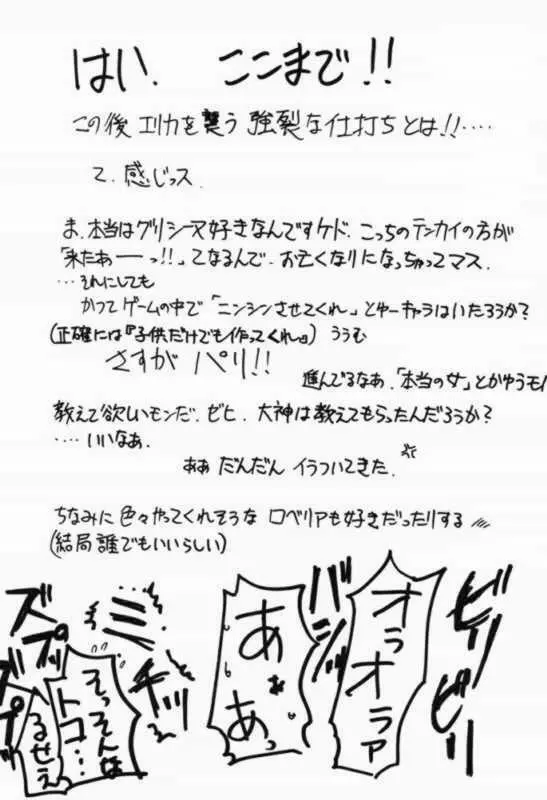 はい、ここまで!!
この後エリカを襲う強裂な仕打ちとは!!‥‥
て、感じっス。
ま、本当はグリシーヌ好きなんですケド、こっちのテンカイの方が
「来たあーっ!!」てなるんで、お亡くなりになっちゃってマス。
‥‥それにしても
かつてゲームの中で「ニンシンさせてくれ」とゆーキャラはいたろうか?
(正確には『子供だけでも作ってくれ』) ううむ
さすがパリ!!
進んでるなあ、「本当の女」とかゆうモノ
教えて欲しいモンだ、ゼヒ、大神は教えてもらったんだろうか?
‥‥いいなぁ、
ああ だんだん イラついてきた。
ちなみに色々やってくれそうな ロベリアも好きだったりする
(結局誰でもいいらしい)
ビリ
ビリ
オラオラァ
バシ
あぁあっ
ミチッ
そっそんなトコ‥
るせえ
ズプッ
ズプッ